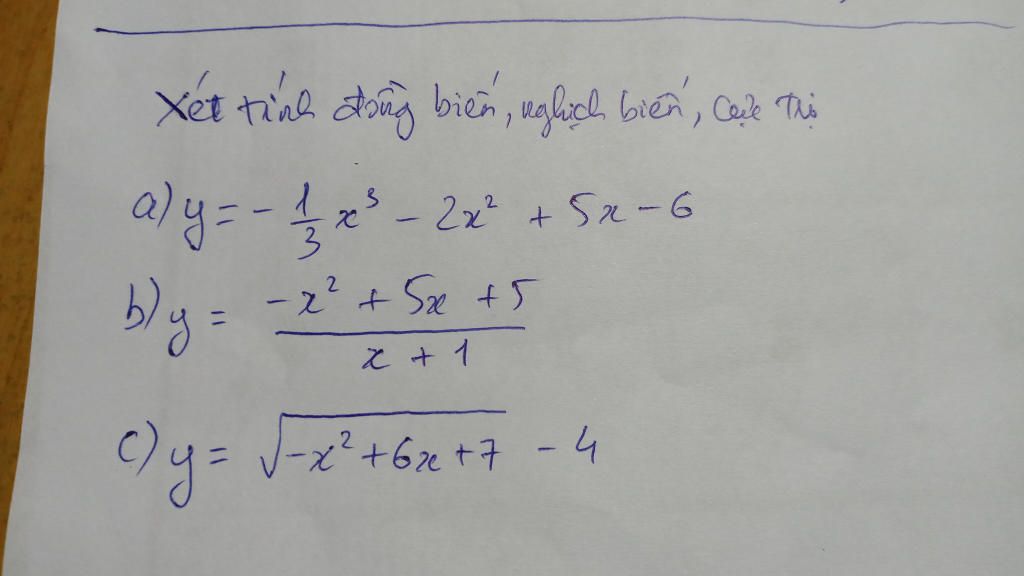 Xét tính đồng biến, nghịch biến, cực trị
a) y = - 1/3 x³ - 2x² + 5x - 6
b) y = (-x² + 5x + 5)/(x + 1)
c) y = √(-x² + 6x + 7) - 4